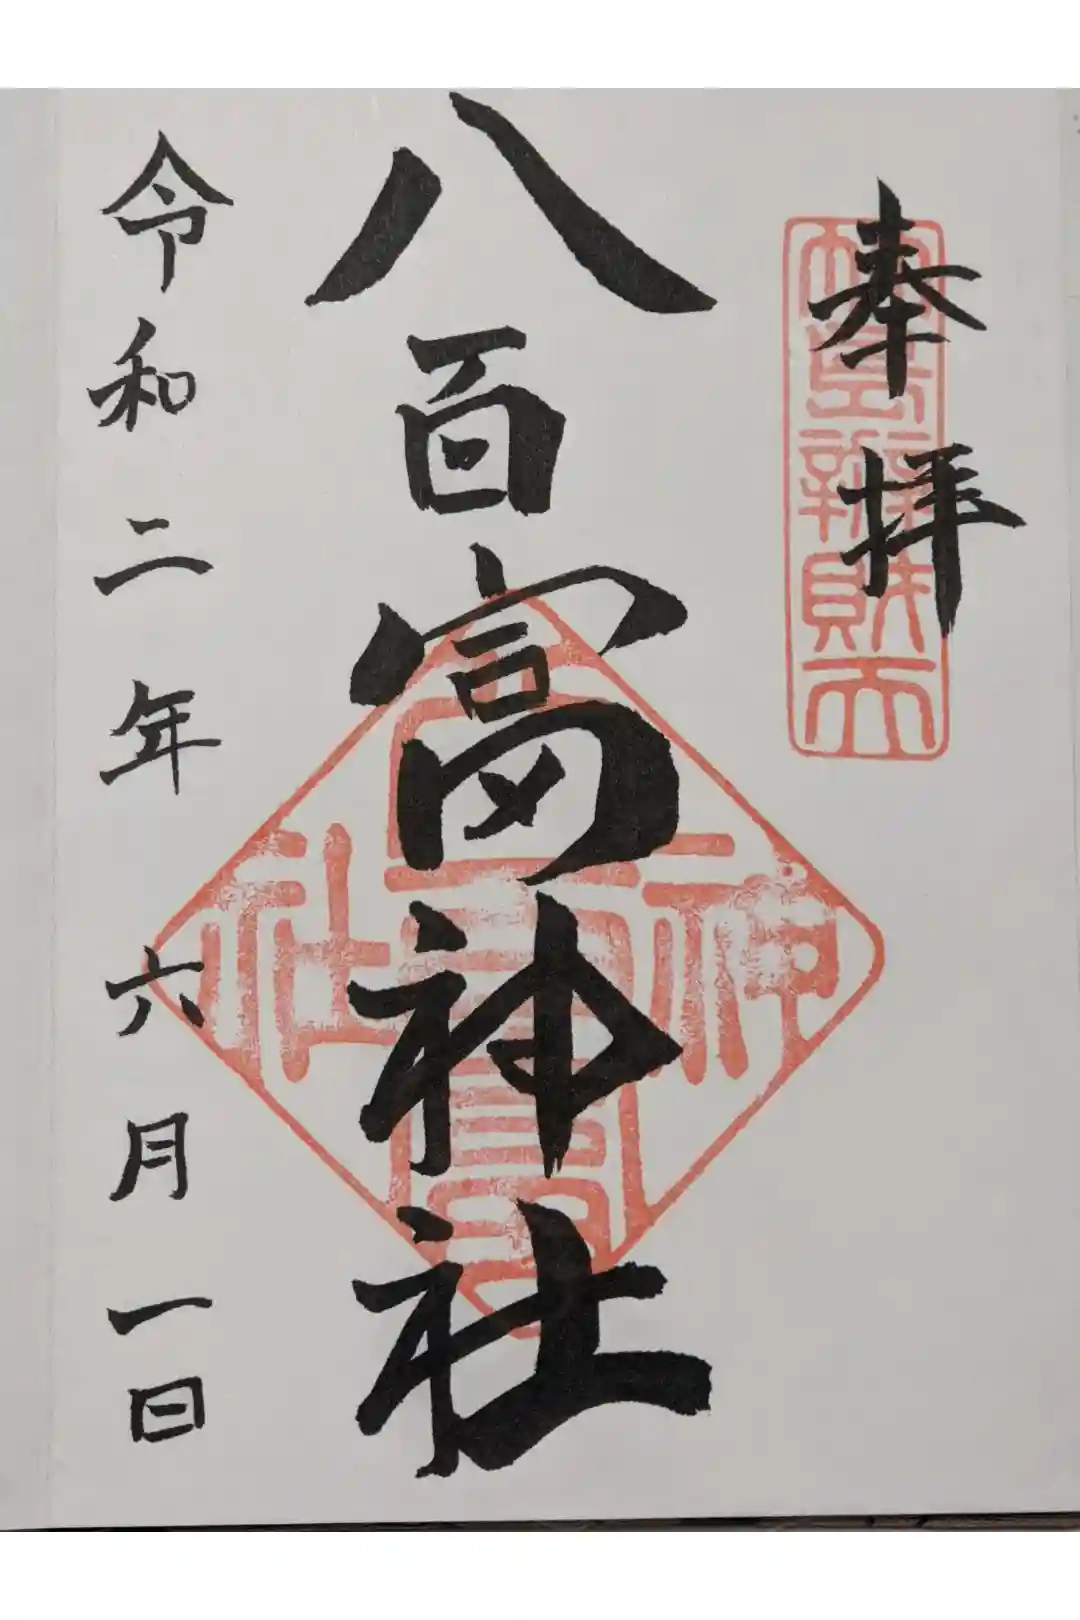 奉拝
竹島辨財天
八百富神社
八百富神社
令和二年六月一日